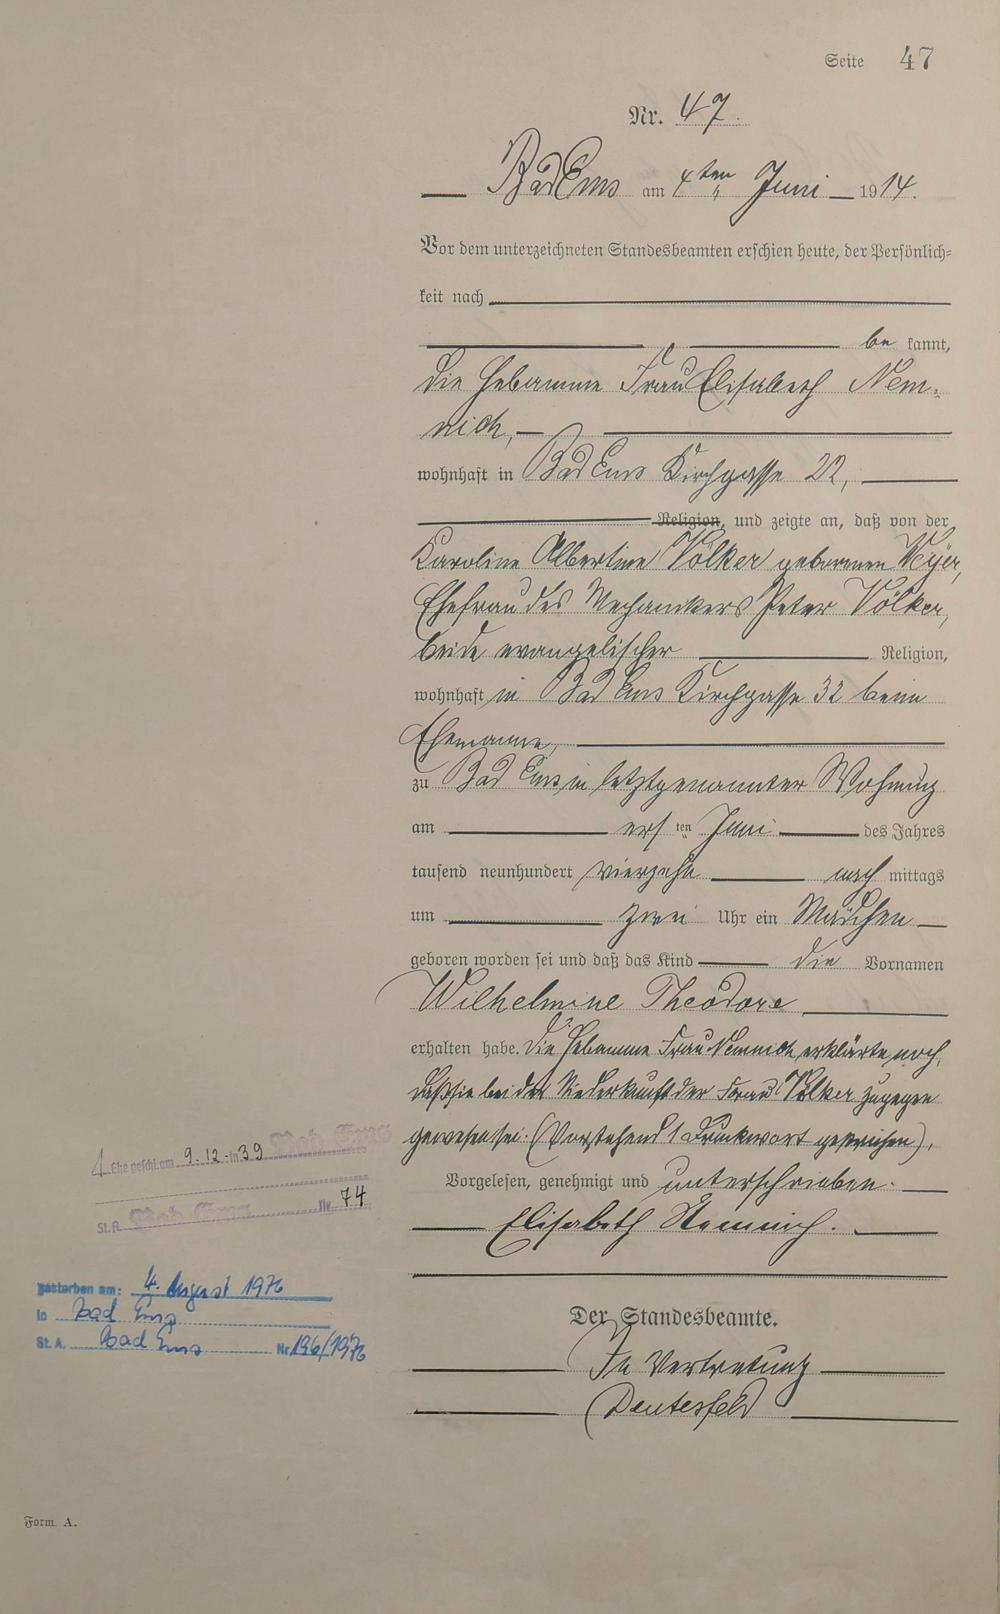 Seite 47
Nr. 47.
Bad Ems am 4ten Juni 1914.
Vor dem unterzeichneten Standesbeamten erschien heute, der Persönlich-
keit nach
be kannt,
die Hebamme Frau Elisabeth Nem-
nich,
wohnhaft in Bad Ems Kirchgasse 22,
Religion, und zeigte an, daß von der
Karoline Albertine Völker geborenen Weyer,
Ehefrau des Mechanikers Peter Völker,
beide evangelischer Religion,
wohnhaft in Bad Ems Kirchgasse 32 beim
Ehemanne,
zu Bad Ems, in letztgenannter Wohnung
am ersten Juni des Jahres
tausend neunhundert vierzehn nachmittags
um zwei Uhr ein Mädchen
geboren worden sei und daß das Kind die Vornamen
Wilhelmine Theodore
erhalten habe. Die Hebamme Frau Nemnich erklärte noch,
daß sie bei der Niederkunft der Frau Völker zugegen
gewesen sei. (Vorstehend 1 Druckwort gestrichen),
Vorgelesen, genehmigt und unterschrieben.
Elisabeth Nemnich.
Der Standesbeamte.
In Vertretung
1 Ehe geschl. am 9.12. in 39 Bad Ems
St.A. Bad Ems Nr. 74
gestorben am: 4. August 1976
in Bad Ems
St. A. Bad Ems Nr. 196/1976
Form. A.